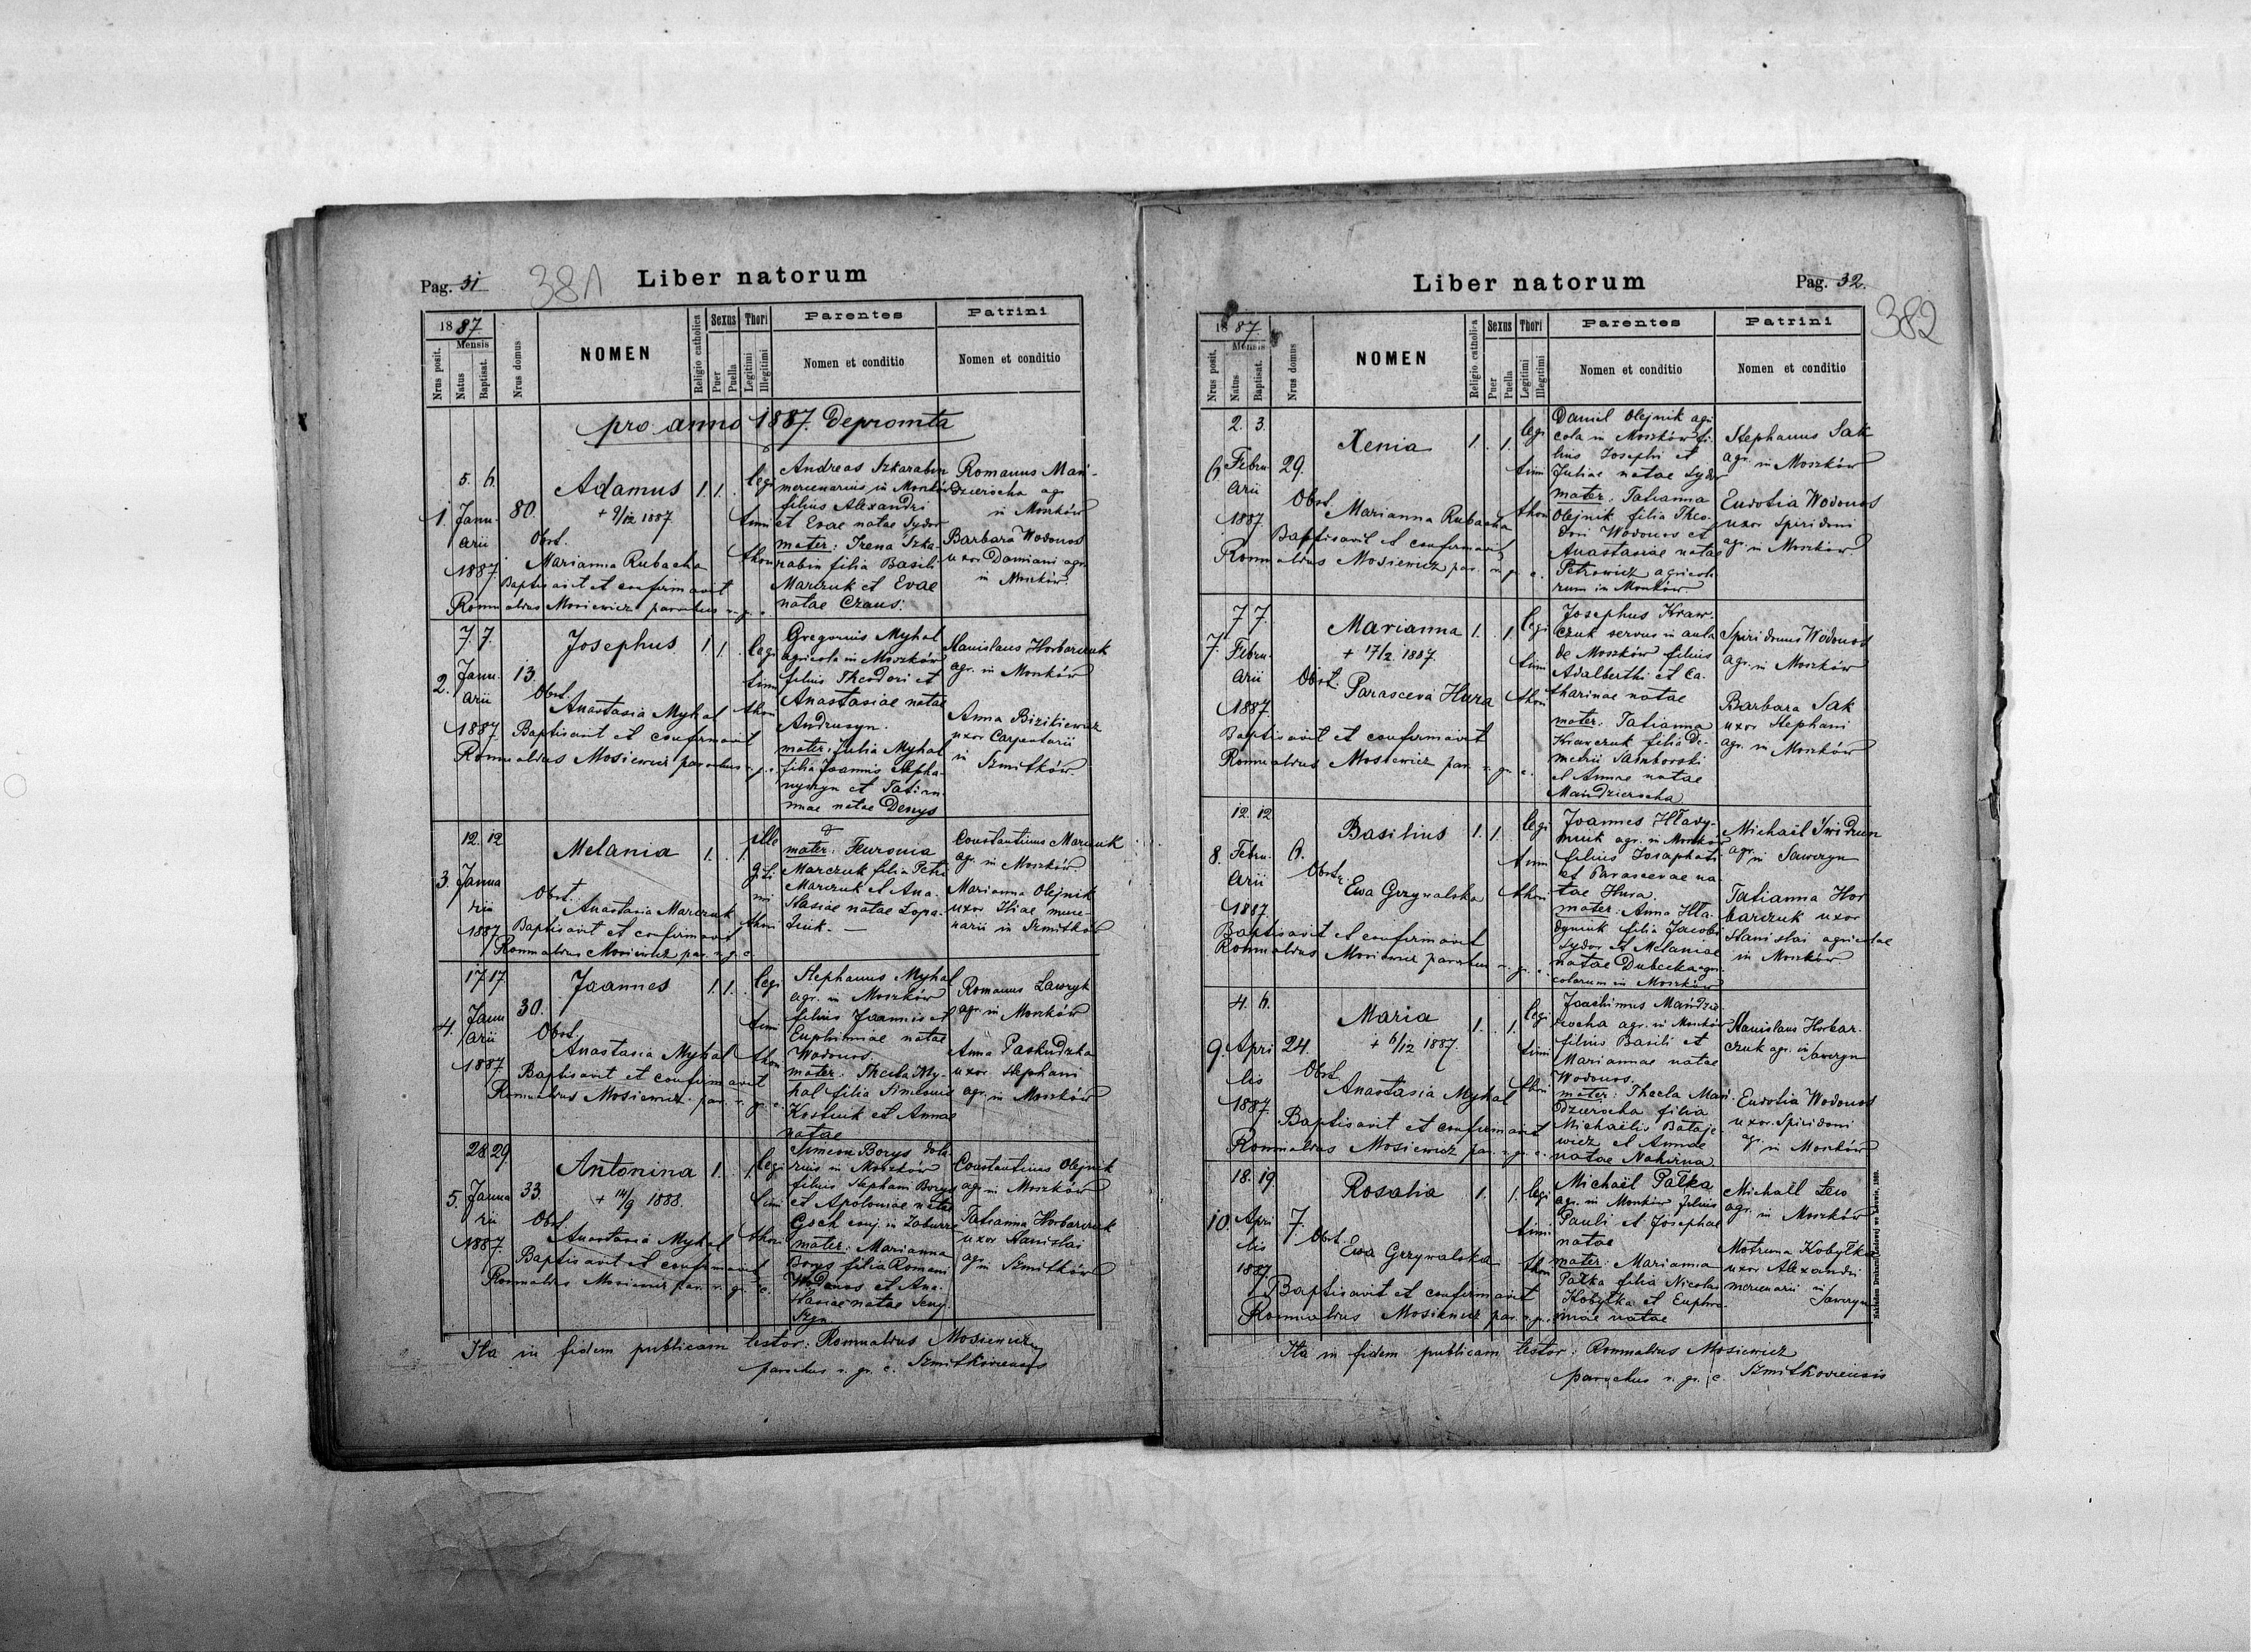 Pag. 31
381
Liber natorum
1887.
Mensis
Nrus posit.
Natus
Baptisat.
Nrus domus
NOMEN
Religio catholica
Sexus
Puer
Puella
Thori
Legitimi
Illegitimi
Parentes
Nomen et conditio
Patrini
Nomen et conditio
pro anno 1887. Depromta
1.
5. 6.
Janu-
arii
1887
80.
Adamus
+ 9/12 1887
Obst.
Marianna Rubacha
Baptisavit et confirmavit
Romualdus Mosiewicz parochus r. g. c.
1. 1.
legi
timi
thori
Andreas Szkarabin
mercenarius in Moszków
filius Alexandri
et Evae natae Sydor
mater: Irena Szka-
rabin filia Basili
Marczuk et Evae
natae Czaus.
Romanus Man-
dzierocha agr.
in Moszków
Barbara Wodonos
uxor Damiani agr.
in Moszków.
2.
7. 7.
Janu-
arii
1887.
13.
Josephus
Obst.
Anastasia Myhal
Baptisavit et confirmavit
Romualdus Mosiewicz parochus r. g. c.
1. 1.
legi
timi
thori
Gregorius Myhal
agricola in Moszków
filius Theodori et
Anastasiae natae
Andrusyn.
mater: Julia Myhal
filia Joannis Stepha-
nyszyn et Tatian-
nae natae Denys
Stanislaus Horbarczuk
agr. in Moszków
Anna Bizikiewicz
uxor Carpentarii
in Szmitków.
3.
12. 12
Janua
rii
1887
Melania
Obst.
Anastasia Marczuk
Baptisavit et confirmavit
Romualdus Mosiewicz par. r. g. c.
1. 1.
ille
giti
mi
thori
mater: Feuronia
Marczuk filia Petri
Marczuk et Ana-
stasiae natae Lopa-
Constantinus Marczuk
agr. in Moszków.
Marianna Olejnik
uxor Iliae merce-
narii in Szmitków
4.
17 17.
Janu
arii
1887
30.
Joannes
Obst.
Anastasia Myhal
Baptisavit et confirmavit
Romualdus Mosiewicz par. r. g. c.
1. 1.
legi
timi
thori
Stephanus Myhal
agr. in Moszków
filius Joannis et
Euphimiae natae
Wodonos.
mater: Thecla My-
hal filia Simeonis
Kostiuk et Annae
natae
Romanus Lawryk
agr. in Moszków
Anna Paskudzka
uxor Stephani
agr. in Moszków
5.
28 29.
Janua
rii
1887.
33.
Antonina
+ 14/9 1888.
Obst.
Anastasia Myhal
Baptisavit et confirmavit
Romualdus Mosiewicz par. r. gr. c.
1. 1.
legi
timi
thori
Simeon Borys dola-
rius in Moszków
filius Stephani Borys
et Apoloniae natae
Goch conj. in Zaburze
mater: Marianna
Borys filia Romani
Wodonos et Ana-
stasiae natae Seny-
szyn
Constantinus Olejnik
agr. in Moszków
Tatianna Horbarczuk
uxor Stanislai
agr. in Szmitków
Ita in fidem publicam testor: Romualdus Mosiewicz
parochus r. gr. c. Szmitkoviensis
Liber natorum
Pag. 32.
382
1887.
Mensis
Nrus posit.
Natus
Baptisat.
Nrus domus
NOMEN
Religio catholica
Sexus
Puer
Puella
Thori
Legitimi
Illegitimi
Parentes
Nomen et conditio
Patrini
Nomen et conditio
6.
2. 3.
Febru-
arii
1887.
29.
Xenia
Obst.
Marianna Rubacha
Baptisavit et confirmavit
Romualdus Mosiewicz par. r. gr. c.
1. 1.
legi
timi
thori
Daniel Olejnik agri
cola in Moszków fi-
lius Josephi et
Juliae natae Sydor
mater: Tatianna
Olejnik filia Theo-
dori Wodonos et
Anastasiae natae
Petrowicz agricola-
rum in Moszków
Stephanus Sak
agr. in Moszków
Eudotia Wodonos
uxor Spiridoni
agr. in Moszków.
7.
7 7.
Febru-
arii
1887.
Marianna
+ 17/2 1887.
Obst.
Parasceva Hura
Baptisavit et confirmavit
Romualdus Mosiewicz par. r. gr. c.
1. 1.
legi
timi
thori
Josephus Kraw-
czuk servus in aula
de Moszków filius
Adalberthi et Ca-
tharinae natae
mater: Tatianna
Krawczuk filia De-
metrii Samborski
et Annae natae
Mandzierocha
Spiridonus Wodonos
agr. in Moszków
Barbara Sak
uxor Stephani
agr. in Moszków
8.
12. 12
Febru-
arii
1887
6.
Basilius
Obstr.
Ewa Grzywalska
Baptisavit et confirmavit
Romualdus Mosiewicz parochus r. gr. c.
1. 1.
legi
timi
thori
Joannes Hlady-
niuk agr. in Moszków
filius Josaphati
et Parascevae na-
tae Hura.
mater: Anna Hla-
dyniuk filia Jacobi
Sydor et Melaniae
natae Dubecka agri-
colarum in Moszków
Michaël Świdrun
agr. in Saweryn
Tatianna Hor
barczuk uxor
Stanislai agricolae
in Moszków
9.
4. 6.
Apri
lis
1887.
24.
Maria
+ 6/12 1887.
Obst.
Anastasia Myhal
Baptisavit et confirmavit
Romualdus Mosiewicz par. r. g. c.
1. 1.
legi
timi
thori
Joachimus Mandzie-
rocha agr. in Moszków
filius Basili et
Mariannae natae
Wodonos.
mater: Thecla Man-
dzierocha filia
Michaëlis Bataje-
wicz et Annae
natae Nahirna
Stanislaus Horbar-
czuk agr. in Saweryn
Eudotia Wodonos
uxor Spiridoni
agr. in Moszków
10.
18. 19
Apri
lis
1887
7.
Rosalia
Obst.
Ewa Grzywalska
Baptisavit et confirmavit
Romualdus Mosiewicz par. r. g. c.
1. 1.
legi
timi
thori
Michaël Pałka
agr. in Moszków filius
Pauli et Josephae
natae
mater: Marianna
Pałka filia Nicolai
Kobyłka et Euphro-
sinae natae
Michaël Lew
agr. in Moszków
Motruna Kobyłka
uxor Alexandri
mercenarii in
Saweryn
Ita in fidem publicam testor: Romualdus Mosiewicz
parochus r. gr. c. Szmitkoviensis
Nakładem Drukarni Ludowej we Lwowie, 1880.